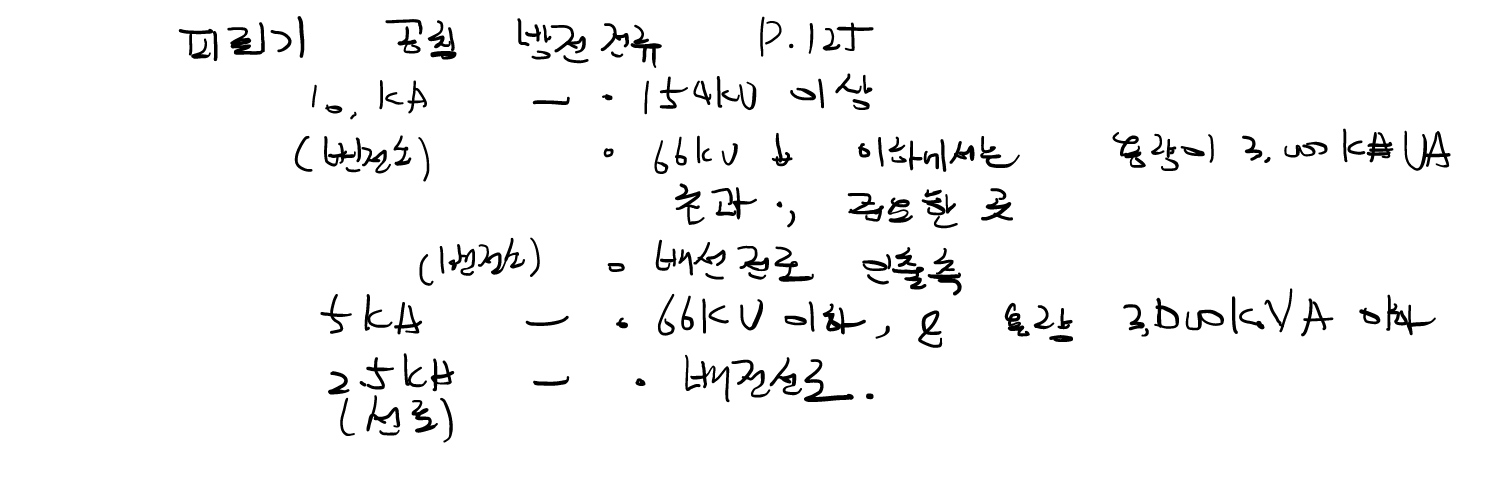 피뢰기 공칭 방전전류 P.125
10, KA — · 154kV 이상
(변전소) · 66kV 이하에서는 용량이 3,000k VA
초과 ·, 중요한 곳
(변전소) · 배선전로 인출측
5KA — · 66KV 이하, & 용량 3,000kVA 이하
2.5KA — · 배전선로.
(선로)